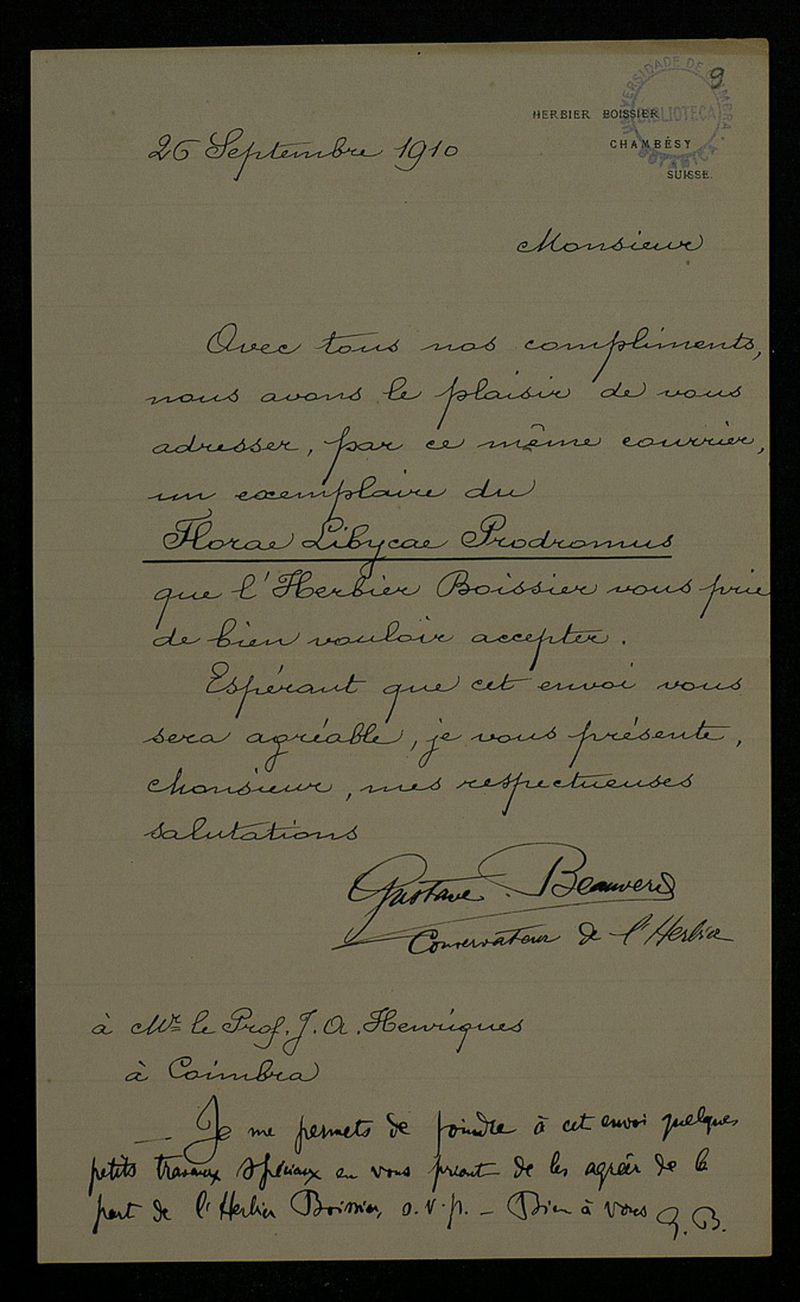 9
UNIVERSIDADE DE COIMBRA
BIBLIOTECA
BOTANICA
HERBIER BOISSIER
CHAMBÉSY
SUISSE.
26 Septembre 1910
Monsieur
Avec tous nos compliments,
nous avons le plaisir de vous
adresser, par ce même courrier,
un exemplaire du
Florae Libycae Prodromus
que l'Herbier Boissier vous prie
de bien vouloir accepter.
Espérant que cet envoi vous
sera agréable, je vous présente,
Monsieur, mes respectueuses
salutations
Gustave Beauverd
Conservateur de l'Herbier
à Mr. le Prof. J. A. Henriques
à Coimbra
— Je me permets de joindre à cet envoi quelques
petits travaux spéciaux en vous priant de les agréer de la
part de l'Herbier Boissier, s.v.p. — Bien à vous G. B.